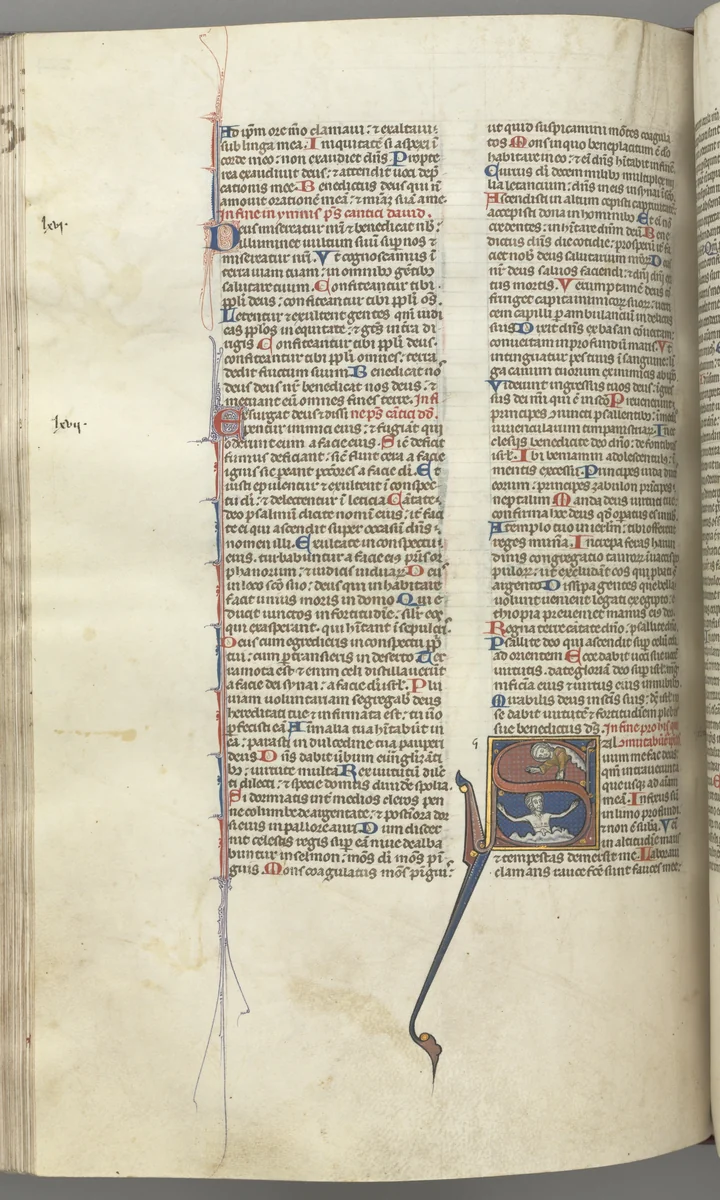 Ad ipm ore meo clamaui: ⁊ exaltaui
sub lingua mea. Iniquitatē si aspexi ī
corde meo: non exaudiet dn̄s. Propte
rea exaudiuit deus: ⁊ attendit uoci dep̄
cationis mee. Benedictus deus qui n̄
amouit orationē meā: ⁊ mīaꝫ suā a me.
In fine in ymnis ps̄ cantici dauid.
lxvi.
Deus misereatur nr̄i ⁊ benedicat nb̄:
illuminet uultum suū sup nos ⁊
misereatur nr̄i. Vt cognoscamus ī
terra uiam tuam: in omnibꝫ gētibꝫ
salutare tuum. Confiteantur tibi
pp̄li deus: confiteantur tibi pp̄li oms̄.
Letentur ⁊ exultent gentes qm̄ iudi
cas pp̄los in equitate: ⁊ gēs in tr̄a di
rigis. Confiteantur tibi pp̄li deus:
confiteantur tibi pp̄li omnes: terra
dedit fructum suum. Benedicat nos
deus deus nr̄ benedicat nos deus: ⁊
metuant eū omnes fines terre. In fi
lxvii.
Exsurgat deus ⁊ dissi ne ps̄ cātici dd̄.
pentur inimici eius: ⁊ fugiāt qui
oderunt eum a facie eius. Sic̄ deficit
fumus deficiant: sic̄ fluit cera a facie
ignis sic̄ peant pctōres a facie di. Et
iusti epulentur ⁊ exultent ī conspec
tu di: ⁊ delectentur ī leticia. Cantate
deo psalmū dicite nomī eius: it̄ faci
te ei qui ascendit super occasū dn̄s
nomen illi. Exultate in conspectu
eius. turbabuntur a facie eius pr̄is or
phanorum: ⁊ iudicis uiduaꝝ. Deus
in loco scō suo: deus qui inhabitare
facit unius moris in domo. Qui e
ducit uinctos in fortitudīe: silr̄ eos
qui exasperant. qui hītant ī sepulcris.
Deus cum egredieris in conspectu pp̄li
tui: cum ptransieris in deserto. Ter
ra mota est ⁊ enim celi distillauerūt
a facie dei synai: a facie di isrl̄. Plu
uiam uoluntariam segregab̄ deus
hereditati tue ⁊ infirmata est: tu ūo
pfecisti eā. Animalia tua hītabūt in
ea: parasti in dulcedine tua paupi
deus. Dn̄s dabit ūbum euīgliꝫātibꝫ
bꝫ: uirtute multa. Rex uirtutū dilec
ti dilecti: ⁊ speciei domus diuidē spolia.
Si dormiatis īnt̄ medios cleros pen
ne columbe deargentate: ⁊ posteriora dor
si eius in pallore auri. Dum discer
nit celestis reges sup eā niue dealba
buntur in selmon: mōs di mōs pī
guis. Mons coagulatus mōs pīguis:
ut quid suspicamini mōtes coagula
tos. Mons in quo beneplacitum ē dō
habitare in eo: ⁊ ei dn̄s hītabit in finē.
Currus di decem milibꝫ multiplex mi
lia letancium: dn̄s in eis in synai ī scō.
Ascendisti in altum cepisti captiuitatē:
accepisti dona in hominibꝫ. Et ei nō
credentes: inhītare dnm̄ deū. Bene
dictus dn̄s die cotidie: prosperū it̄ fa
ciet nob̄ deus salutarium nr̄oꝝ. Deus
nr̄ deus saluos faciendi: ⁊ dn̄i dn̄i exi
tus mortis. Verumptamē deus cō
fringet capita inimicoꝝ suoꝝ: uerti
cem capilli pambulanciū in delictis
suis. Dixit dn̄s ex basan cōuertam:
conuertam in profundū maris. Vt
intinguatur pes tuus ī sanguine: lī
ga canum tuorum ex inimicis ab ipō.
Viderunt ingressus tuos deus: īgres
sus dei mei qui ē in scō. Preuenerunt
principes ōiuncti psalentibꝫ: in medio
iuuencularum tympanistriaꝝ. In ec
clesiis benedicite deo dn̄o: de fontibꝫ
isrl̄. Ibi beniamin adolescentulus: ī
mentis excessu. Principes iuda duces
eorum: principes zabulon prīcipes
neptalim. Manda deus uirtuti tue:
confirma hoc deus qd̄ opatus es in nob̄.
A templo tuo in ierlm̄: tibi offerent
reges munā. Increpa feras harun
dinis congregatio tauroꝝ ī uaccis po
puloꝝ: ut excludāt eos qui pbati sūt
argento. Dissipa gentes que bella
uolunt uenient legati ex egipto: e
thiopia preueniet manus eiꝰ deo.
Regna terre cātate dn̄o: psallite dn̄o.
Psallite deo qui ascendit sup celū celi:
ad orientem. Ecce dabit uoci sue uocē
uirtutis. date gloriā deo sup isrl̄: mag
nificia eius ⁊ uirtus eius in nubibꝫ.
Mirabilis deus in scīs suis: ds̄ isrl̄ ip
se dabit uirtutē ⁊ fortitudinē plebi
sue benedictus ds̄. In fine pro his qui
Sal mutabuntur
uum me fac deus:
qm̄ intrauerunt
que usqꝫ ad aīam
meā. Infixus sū
in limo profundi:
⁊ non ē suba. Veni
in altitudinē maris
⁊ tempestas demersit me. Laboraui
clamans rauce fcē sunt fauces mee: